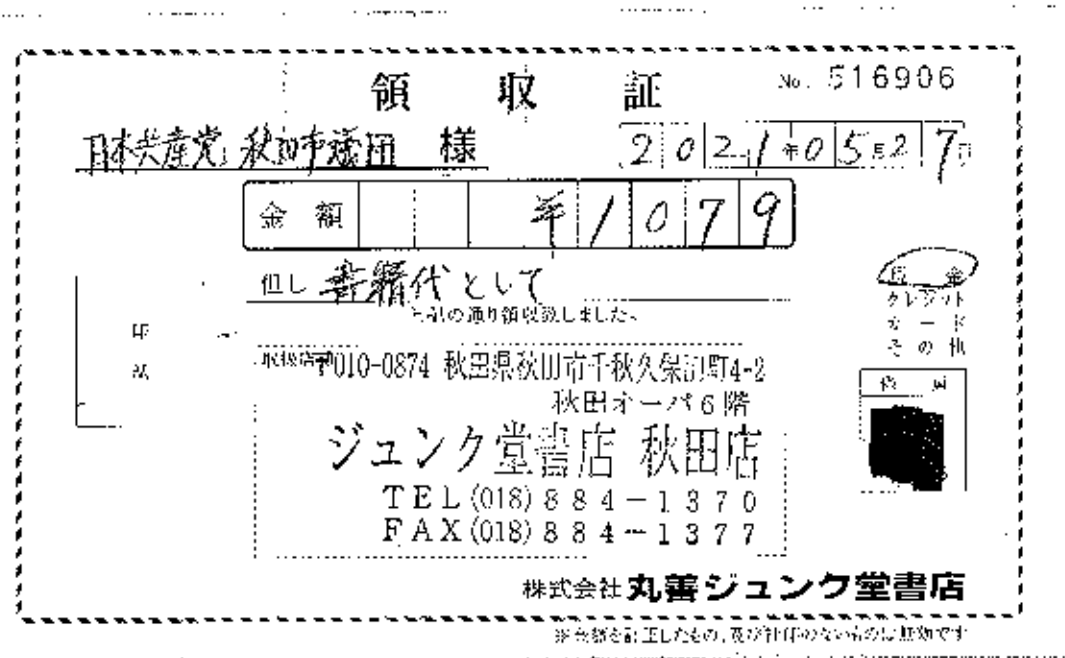 領収証
No. 516906
日本共産党 秋田市議団 様
2021年05月27日
金額 ¥1079
但し 書籍代として
上記の通り領収致しました。
現金
クレジット
カード
その他
印
紙
取扱店
〒010-0874 秋田県秋田市千秋久保田町4-2
秋田オーパ6階
ジュンク堂書店 秋田店
TEL(018)884-1370
FAX(018)884-1377
株式会社 丸善ジュンク堂書店
※金額を訂正したもの、及び社印のないものは無効です